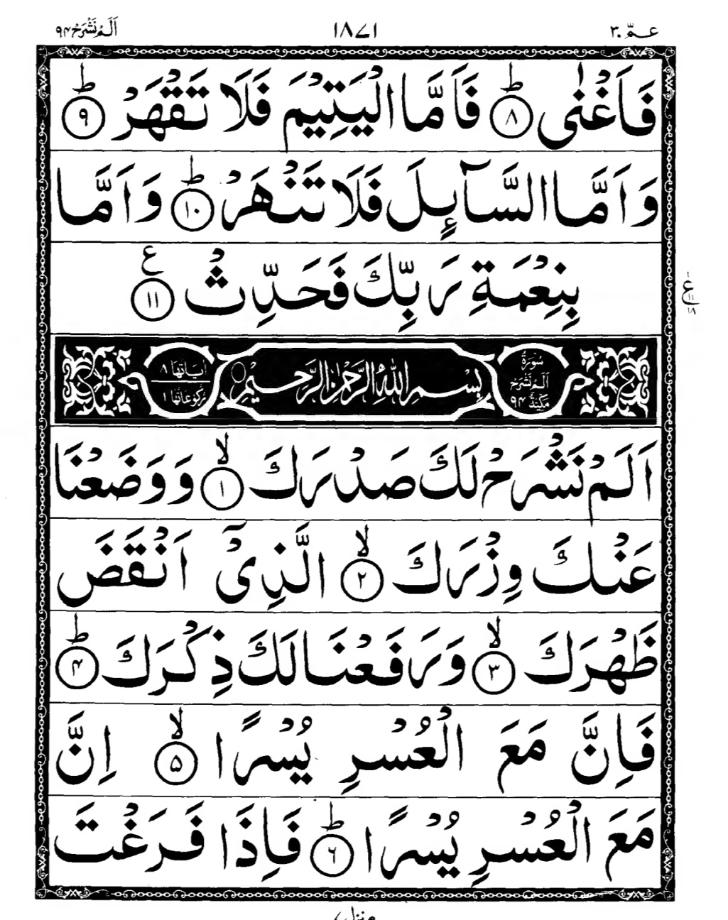 عـمّ ٣٠ ١٨٧١ اَلَمْ نَشْرَحْ ٩٤
فَاَغْنٰى ؕ ٨ فَاَمَّا الْيَتِيْمَ فَلَا تَقْهَرْ ؕ ٩
وَاَمَّا السَّآىِٕلَ فَلَا تَنْهَرْ ؕ ١٠ وَاَمَّا
بِنِعْمَةِ رَبِّكَ فَحَدِّثْ ١١ ع
ع
١١
١٨
سُوْرَةُ اَلَمْ نَشْرَحْ مَكِّيَّةٌ ٩٤ بِسْمِ اللّٰهِ الرَّحْمٰنِ الرَّحِيْمِ اٰيَاتُهَا ٨ رُكُوْعَاتُهَا ١
اَلَمْ نَشْرَحْ لَكَ صَدْرَكَ ۙ ١ وَوَضَعْنَا
عَنْكَ وِزْرَكَ ۙ ٢ الَّذِيْٓ اَنْقَضَ
ظَهْرَكَ ۙ ٣ وَرَفَعْنَا لَكَ ذِكْرَكَ ؕ ٤
فَاِنَّ مَعَ الْعُسْرِ يُسْرًا ۙ ٥ اِنَّ
مَعَ الْعُسْرِ يُسْرًا ؕ ٦ فَاِذَا فَرَغْتَ
منزل ٧